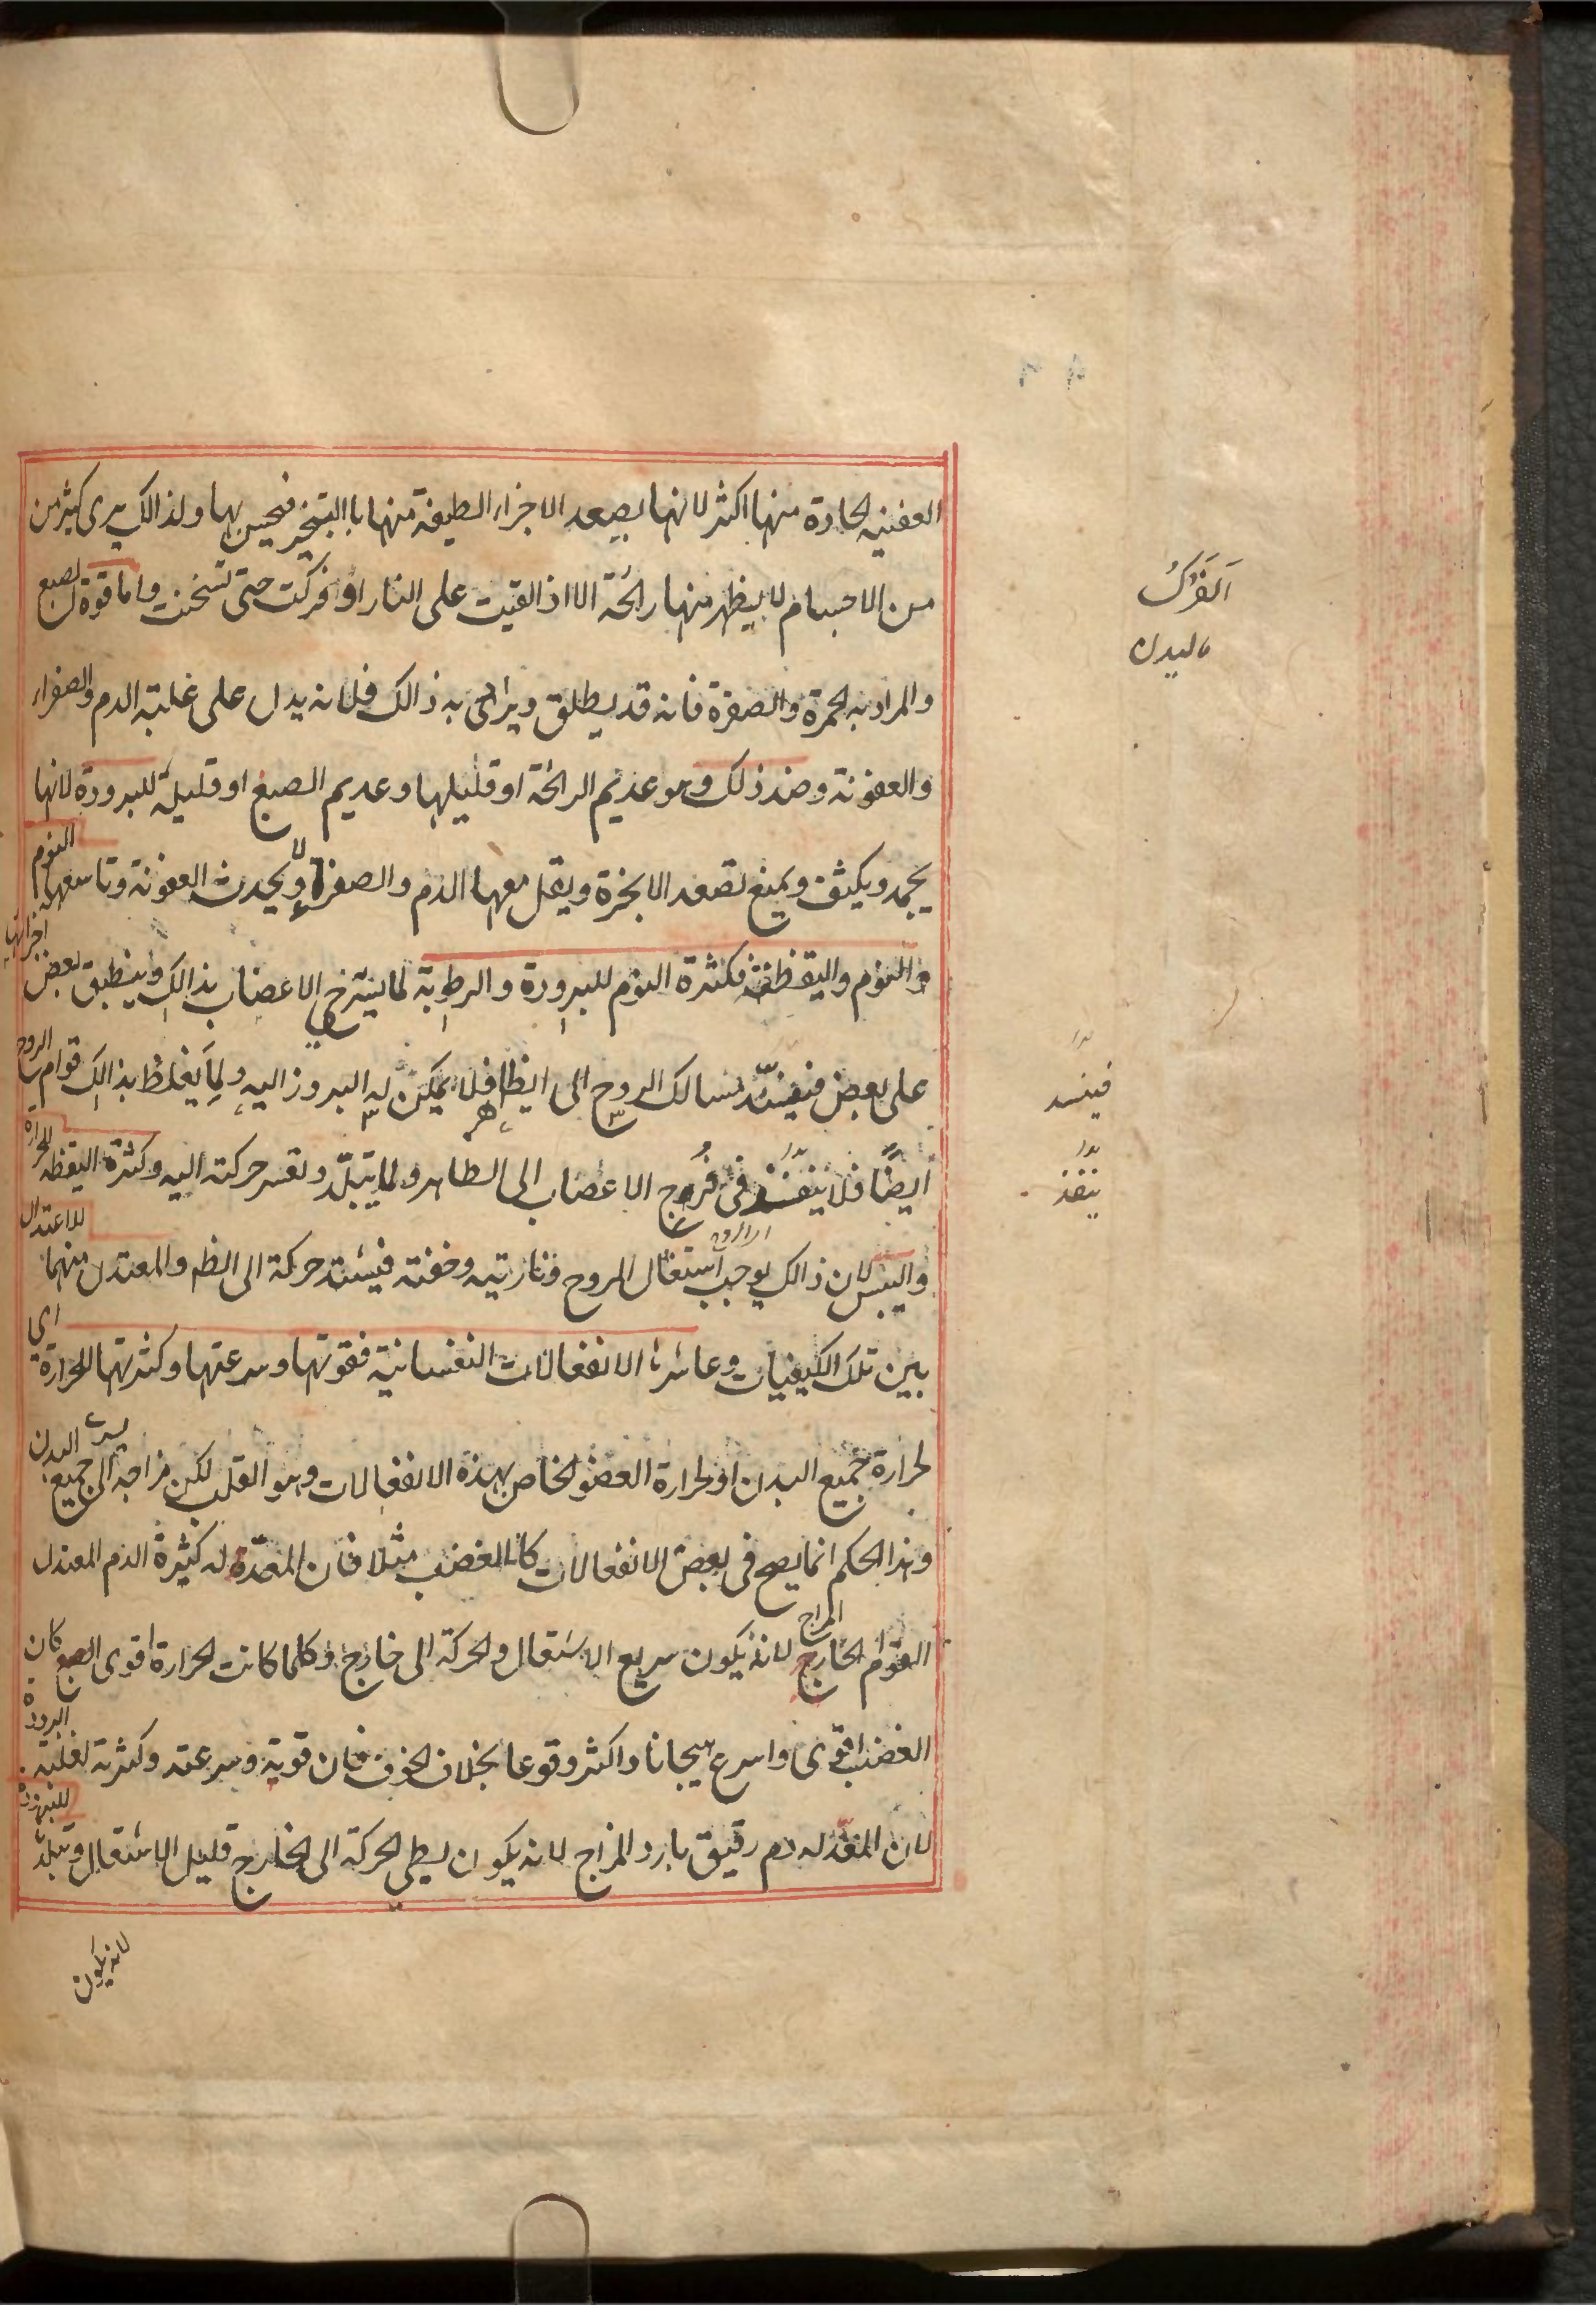 العفنيه الحادة منها اكثر لانها يصعد الاجزاء الطيفة منها باالتبخير فيحس بها ولذالك يرى كثير من
من الاجسام لا يظهر منها رائحة الا اذ القيت على النار او فركت حتى تسخنت واما قوة الصبغ
والمراد به الحمرة والصفرة فانه قد يطلق ويراد به ذالك فلانه يدل على غلبة الدم والصفراء
والعفونة وضد ذلك وهو عديم الرائحة او قليلها وعديم الصبغ او قليله للبرودة لانها
يجمد ويكثف ويمنع تصعد الابخرة ويقل معها الدم والصفراء ولا يحدث العفونة وتاسعها النوم
والنوم واليقظة فكثرة النوم للبرودة والرطوبة لما يسترخى الاعضاب بذالك وينطبق بعض اجزائها
على بعض فينسد مسالك الروح الى الظاهر فلا يمكن له البروز اليه ولما يغلظ بذالك قوام الروح
ايضًا فلا ينفذ فى فُرُج الاعضاب الى الظاهر ولما يتبلّد وتعسر حركته اليه وكثرة اليقظه للحرارة
واليبس لان ذالك يوجب استعال الروح وناريته وخفته فيشتد حركة الى الظ والمعتدل منهما للاعتدال
بين تلك الكيفيات وعاشرها الانفعالات النفسانية فقوتها وسرعتها وكثرتها للحرارة اى
لحرارة جميع البدن او لحرارة العضو الخاص بهذه الانفعالات وهو القلب لكن مزاجه الى جميع البدن
وهذا الحكم انما يصح فى بعض الانفعالات كالغضب مثلا فان المعدّ له كثيرة الدم المعتدل
القوام الحار المزاج لانه يكون سريع الاشتعال والحركة الى خارج وكلما كانت الحرارة اقوى الصبغ كان
الغضب اقوى واسرع هيجانا واكثر وقوعا بخلاف الخوف فان قوية وسرعته وكثرته لغلبة البرودة
لان المعدّ له دم رقيق بارد المزاج لانه يكون بطي الحركة الى الخارج قليل الاشتعال وتبلدها للبرودة
لانه يكون
اَلفَرْكُ
ماليدن
فينسد
ينفذ